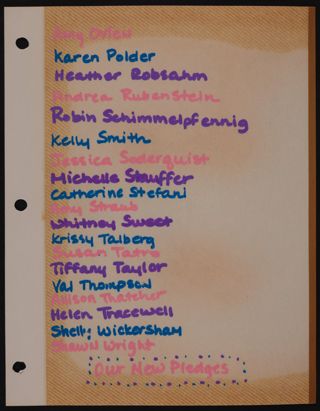 Amy Ovien
Karen Polder
Heather Robsahm
Andrea Rubenstein
Robin Schimmelpfennig
Kelly Smith
Jessica Soderquist
Michelle Stauffer
Catherine Stefani
Straub
Whitney Sweet
Krissy Talberg
Susan Tatro
Tiffany Taylor
Val Thompson
Allison Thatcher
Helen Tracewell
Shelli Wickersham
Shawn Wright
Our New Pledges